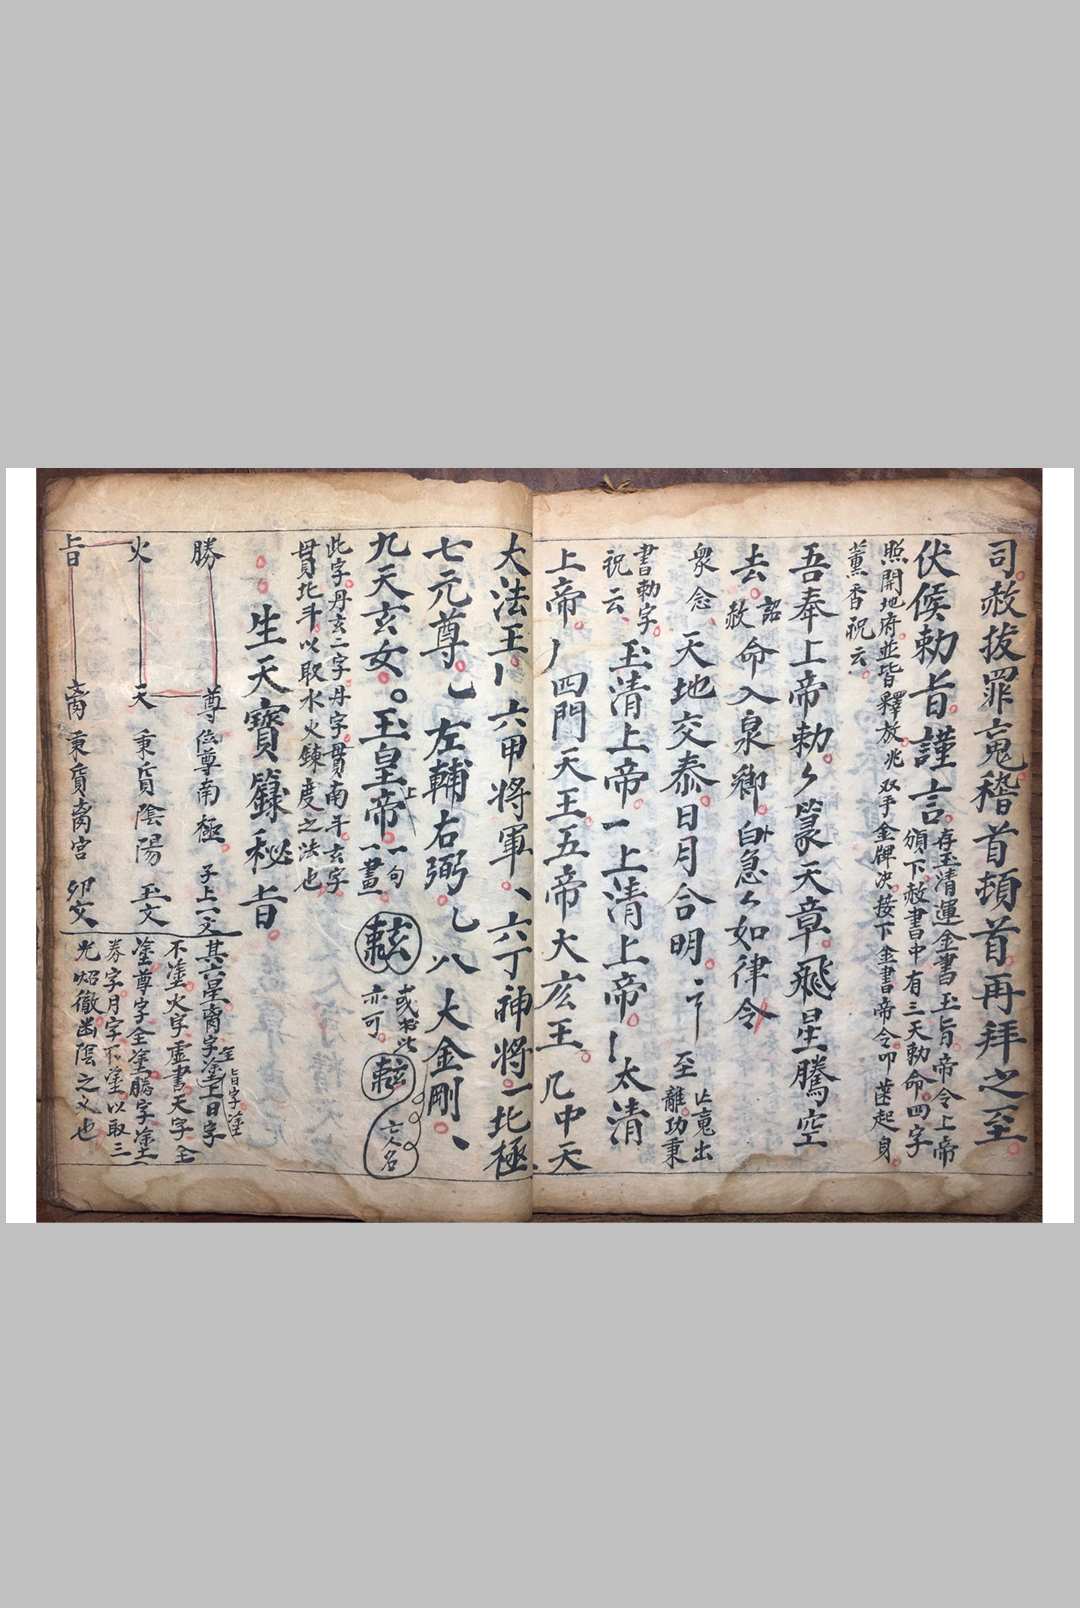 司赦拔罪䰟稽首頓首再拜之至
伏候勅旨謹言
存玉清運金書玉旨帝令上帝
頒下赦書中有三天勅命四字
照開地府並皆釋放兆双手金牌决接下金書帝令叩莲起身
薰香祝云
吾奉上帝勅篆天章飛星騰空
去詔赦命入泉鄉急如律令
衆念天地交泰日月合明至
亡䰟出
離功秉
書勅字
祝云
玉清上帝一上清上帝太清
上帝丿四門天王五帝大玄王几中天
大法王六甲將軍六丁神將一北極
七元尊乚左輔右弼乚八大金剛
九天玄女玉皇上帝
一句
一畫
或书此
亦可
亡人名
此字丹玄二字丹字貫南斗玄字
貫北斗以取水火鍊度之法也
生天寶籙秘旨
勝
尊
位尊南極
子上一文
火
天
秉質陰陽
玉文
旨
离
秉質离宮
卯文
其六星离字塗上日字
全旨字塗
不塗火字虛書天字全
塗尊字全塗勝字塗
券字月字不塗以取三
光炤徹幽陰之义也